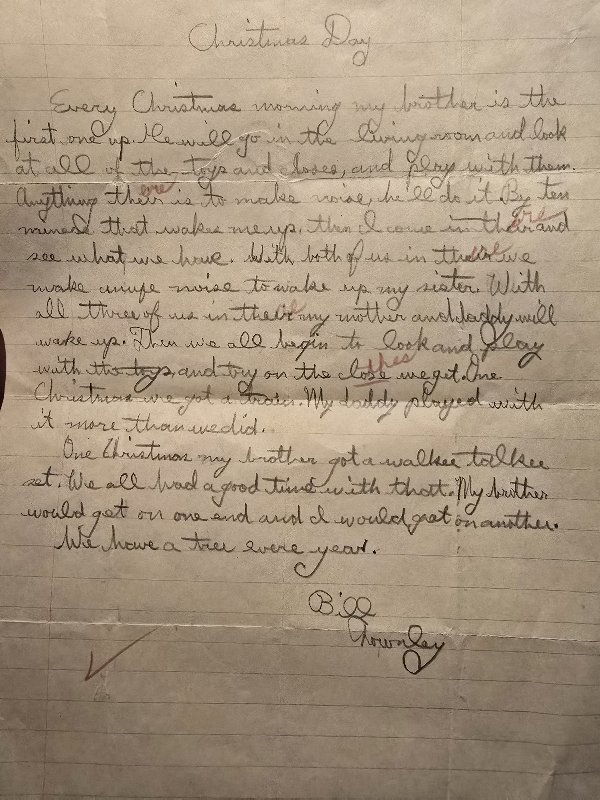 Christmas Day
Every Christmas morning my brother is the
first one up. He will go in the living room and look
at all of the toys and closes, and play with them.
Anything their ere is to make noise, he'll do it. By ten
minents that wakes me up, then I come in their ere and
see what we have. With both of us in their ere we
make anufe noise to wake up my sister. With
all three of us in their ere my mother and daddy will
wake up. Then we all begin to look and play
with the toys, and try on the close thes we get. One
Christmas we got a train. My daddy played with
it more than we did.
One Christmas my brother got a walkee talkee
set. We all had a good time with that. My brother
would get on one end and I would get on another.
We have a tree evere year.
Bill
Townley